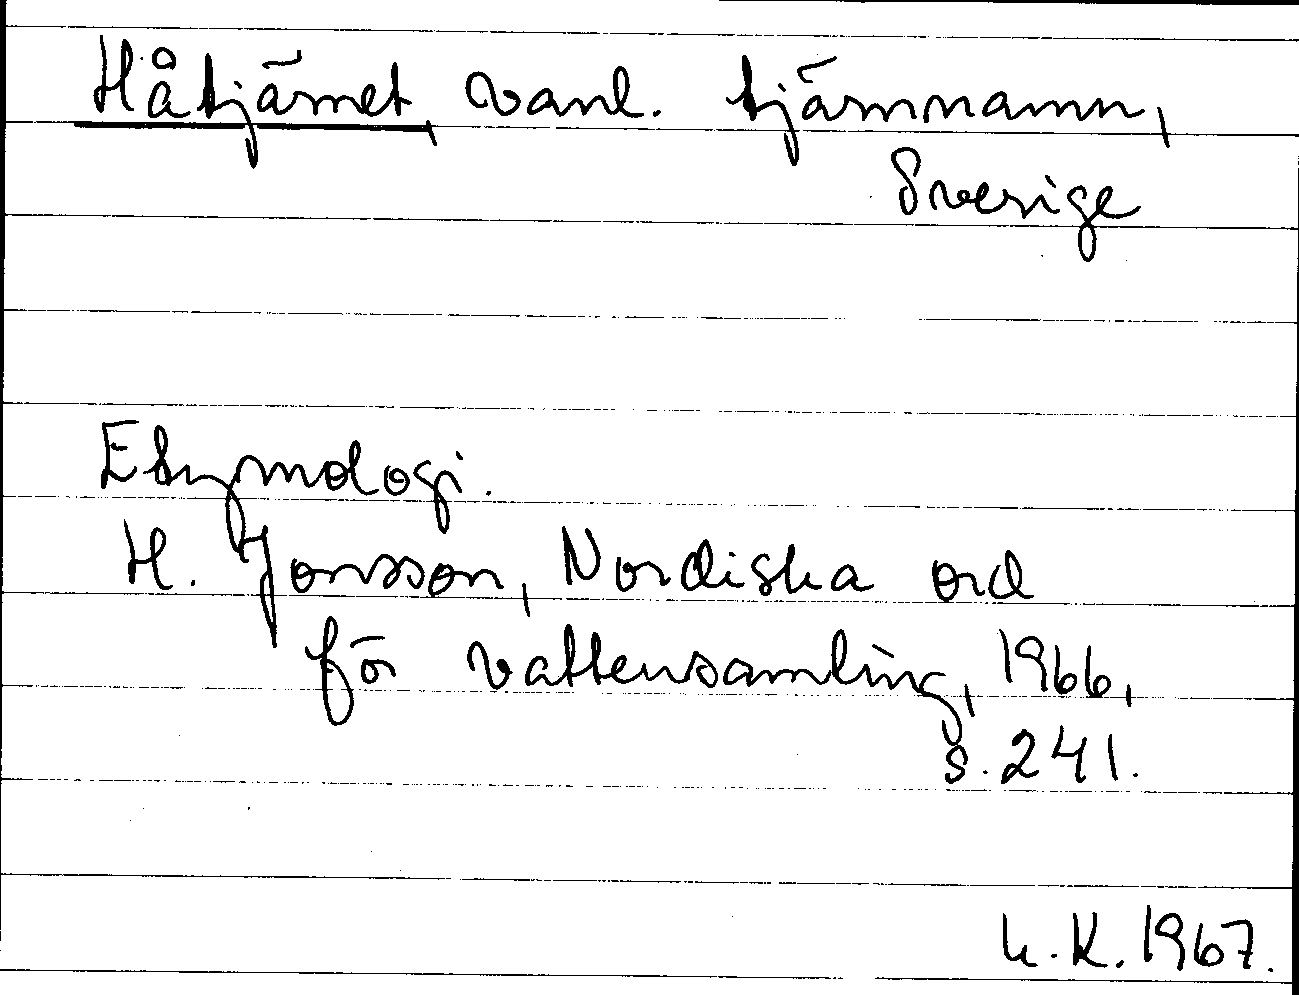 Håtjärnet, vanl. tjärnnamn,
Sverige
Etymologi.
H. Jonsson, Nordiska ord
för vattensamling, 1966,
s. 241.
L. K. 1967.